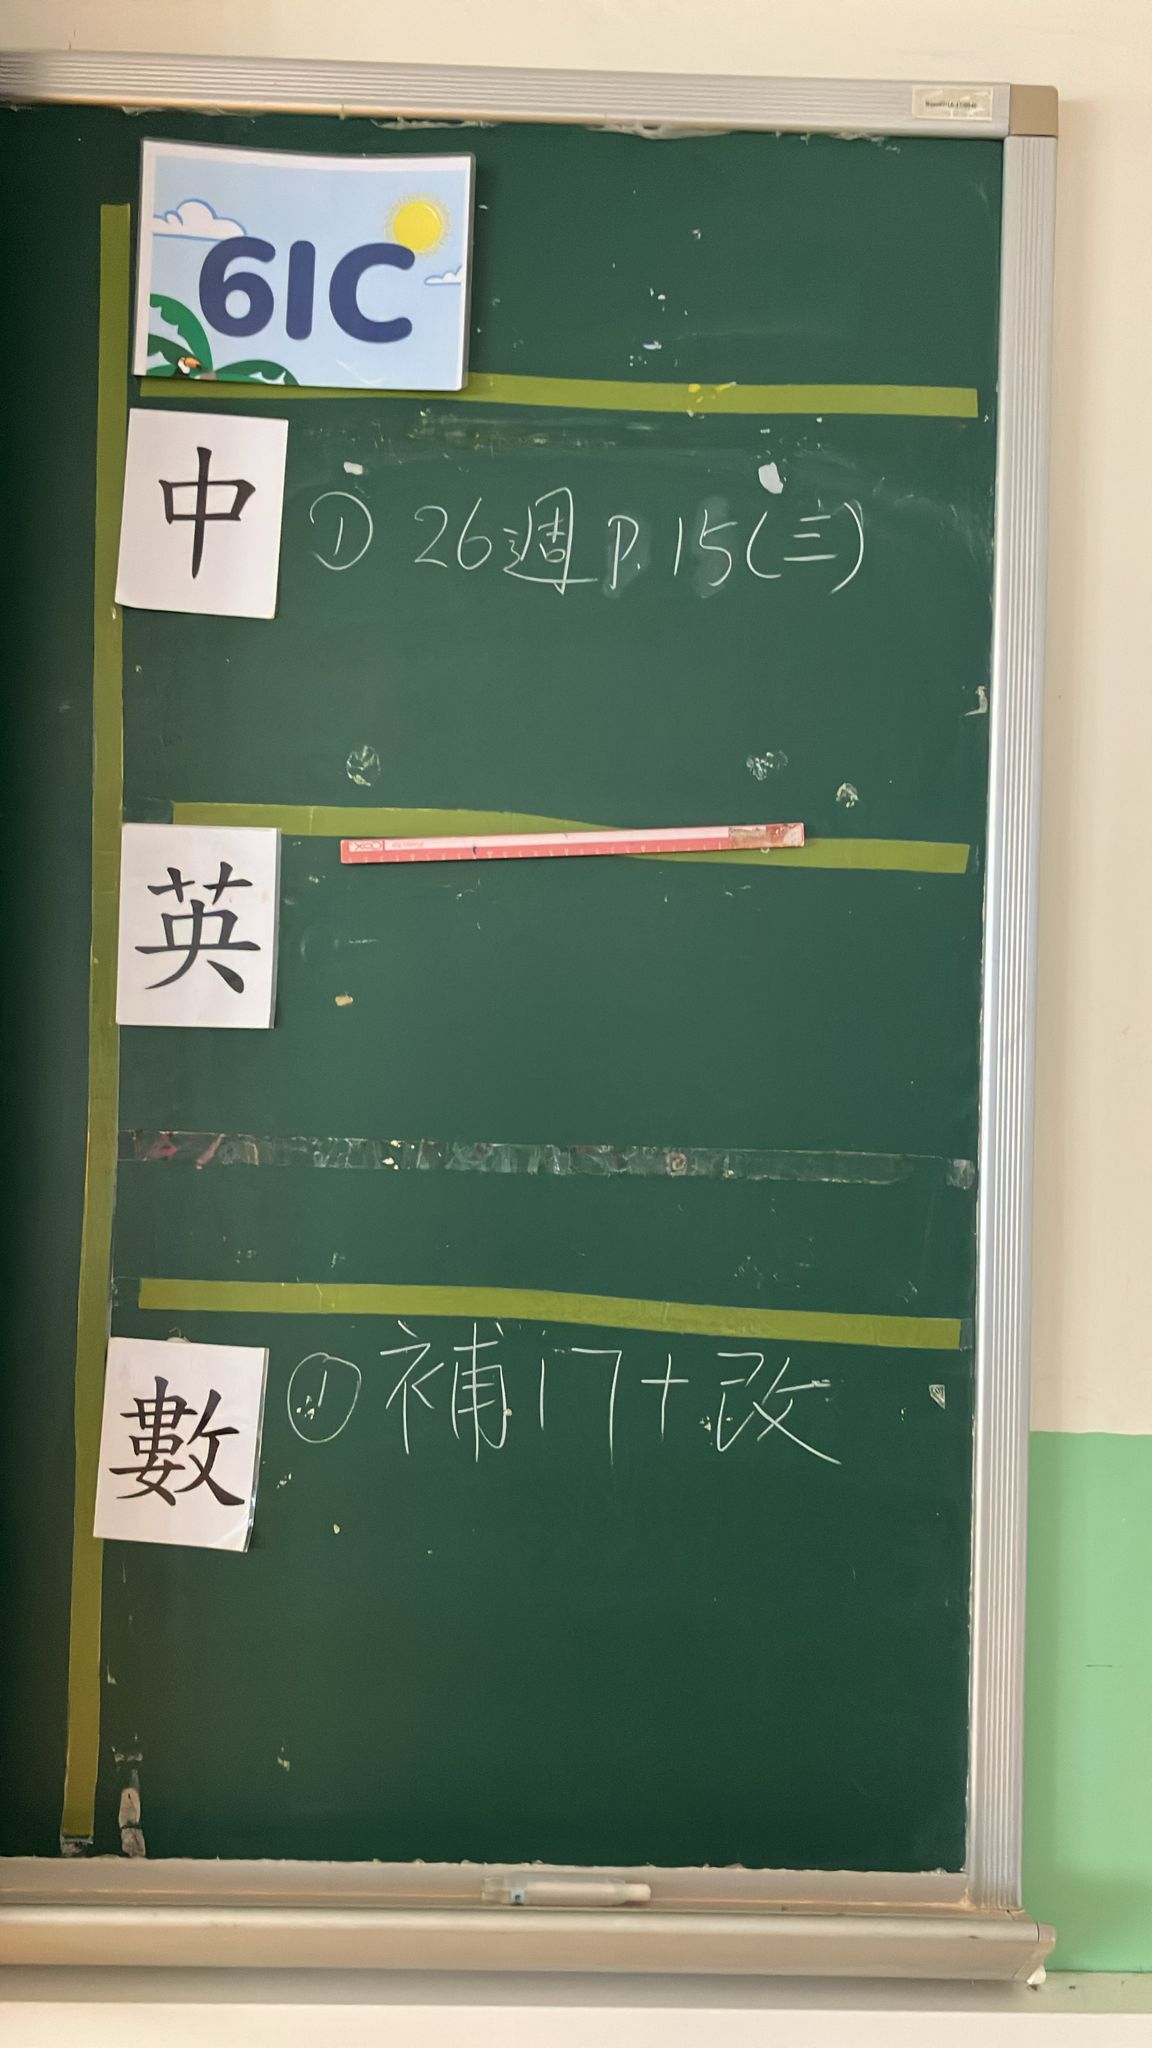 61C
中
① 26週 P.15(三)
英
數
① 補17+改